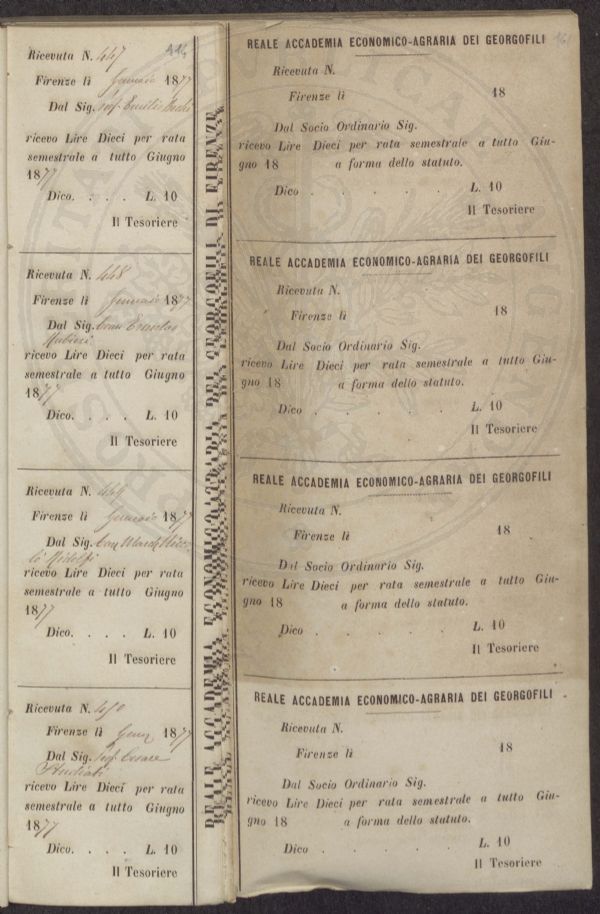 Ricevuta N. 447
Firenze lì Gennaio 1877
Dal Sig. Emilio
ricevo Lire Dieci per rata
semestrale a tutto Giugno
1877
Dico. . . . L. 10
Il Tesoriere
Ricevuta N. 448
Firenze lì Gennaio 1877
Dal Sig.
Rubieri
ricevo Lire Dieci per rata
semestrale a tutto Giugno
1877
Dico. . . . L. 10
Il Tesoriere
Ricevuta N. 449
Firenze lì Gennaio 1877
Dal Sig.
Ridolfi
ricevo Lire Dieci per rata
semestrale a tutto Giugno
1877
Dico. . . . L. 10
Il Tesoriere
Ricevuta N. 450
Firenze lì 1877
Dal Sig. Cesare
Studiati
ricevo Lire Dieci per rata
semestrale a tutto Giugno
1877
Dico. . . . L. 10
Il Tesoriere
REALE ACCADEMIA ECONOMICO-AGRARIA DEI GEORGOFILI DI FIRENZE
REALE ACCADEMIA ECONOMICO-AGRARIA DEI GEORGOFILI
Ricevuta N.
Firenze lì 18
Dal Socio Ordinario Sig.
ricevo Lire Dieci per rata semestrale a tutto Giu-
gno 18 a forma dello statuto.
Dico . . . . . L. 10
Il Tesoriere
REALE ACCADEMIA ECONOMICO-AGRARIA DEI GEORGOFILI
Ricevuta N.
Firenze lì 18
Dal Socio Ordinario Sig.
ricevo Lire Dieci per rata semestrale a tutto Giu-
gno 18 a forma dello statuto.
Dico . . . . . L. 10
Il Tesoriere
REALE ACCADEMIA ECONOMICO-AGRARIA DEI GEORGOFILI
Ricevuta N.
Firenze lì 18
Dal Socio Ordinario Sig.
ricevo Lire Dieci per rata semestrale a tutto Giu-
gno 18 a forma dello statuto.
Dico . . . . . L. 10
Il Tesoriere
REALE ACCADEMIA ECONOMICO-AGRARIA DEI GEORGOFILI
Ricevuta N.
Firenze lì 18
Dal Socio Ordinario Sig.
ricevo Lire Dieci per rata semestrale a tutto Giu-
gno 18 a forma dello statuto.
Dico . . . . . L. 10
Il Tesoriere